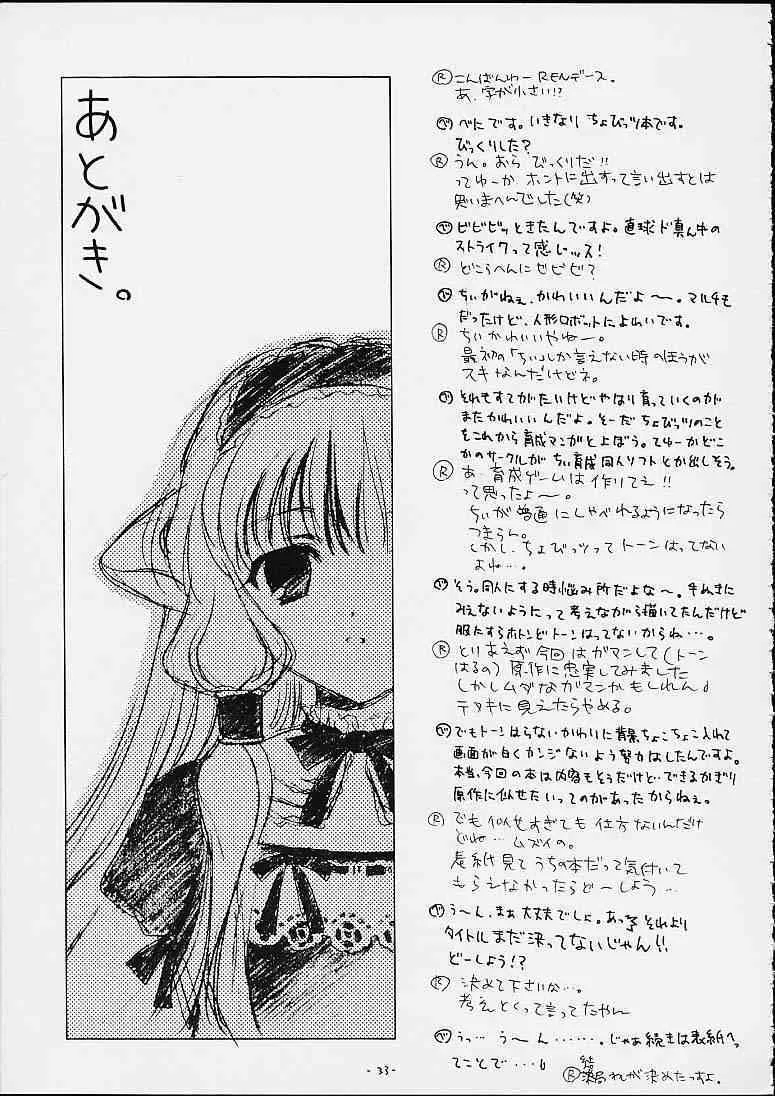 あとがき。
Ⓡこんばんわー RENデース。
あ、字が小さい!?
べにです。いきなり ちょびっツ本です。
びっくりした?
Ⓡうん。おら びっくりだ!!
ってゆーか ホントに出すって言い出すとは
思いまへんでした(笑)
ビビビッときたんですよ。直球ド真ん中の
ストライクって感じッス!
Ⓡどこらへんにビビビ?
ちぃがねぇ、かわいいんだよ〜。マルチも
だったけど、人形ロボットによわいです。
Ⓡちぃかわいいやねー。
最初の「ちぃ」しか言えない時のほうが
スキなんだけどネ。
それもすてがたいけどやはり育っていくのが
またかわいいんだよ。そーだ ちょびっツのこと
をこれから育成マンガとよぼう。てゆーかどこ
かのサークルが ちぃ育成同人ソフトとか出しそう。
Ⓡあ、育成ゲームは作りてぇ!!
って思ったよ〜。
ちぃが普通にしゃべれるようになったら
つまらん。
しかし、ちょびっツってトーンはってない
よね…。
そう。同人にする時悩み所だよな〜。手ぬきに
みえないようにって考えながら描いてたんだけど
服にすらホトンどトーンはってないからね…。
Ⓡとりあえず今回はガマンして(トーン
はるの)原作に忠実してみました
しかしムダなガマンかもしれん。
テヌキに見えたらやめる。
でもトーンはらないかわいに背景ちょこちょこ入れて
画面が白くカンジないよう努力はしたんですよ。
本当、今回の本は内容もそうだけど…できるかぎり
原作に似せたいってのがあったからねぇ。
Ⓡでも 似せすぎても 仕方ないんだけ
どね… ムズイの。
表紙見てうちの本だって気付いて
もらえなかったらどーしよう…
う〜ん、まぁ大丈夫でしょ。あっそれより
タイトルまだ決ってないじゃん!!
どーしよう!?
Ⓡ決めて下さいか…。
考えとくって言ってたやん
うっ… う〜ん……。じゃあ続きは表紙へっ
てことで…。
Ⓡ結局れんが決めたっすよ。
- 33 -